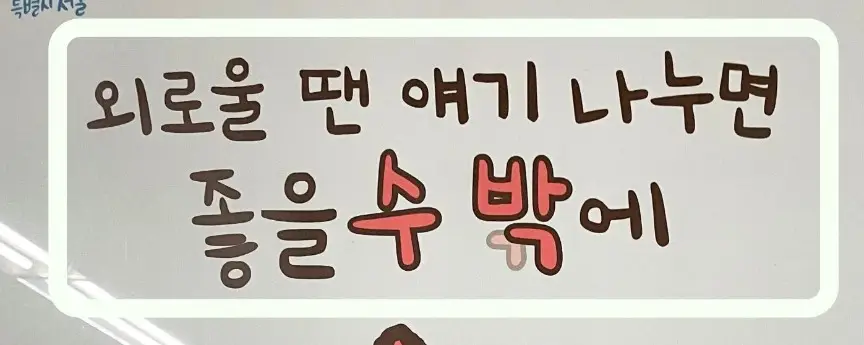 특별시 서울
외로울 땐 얘기 나누면
좋을수 밖에